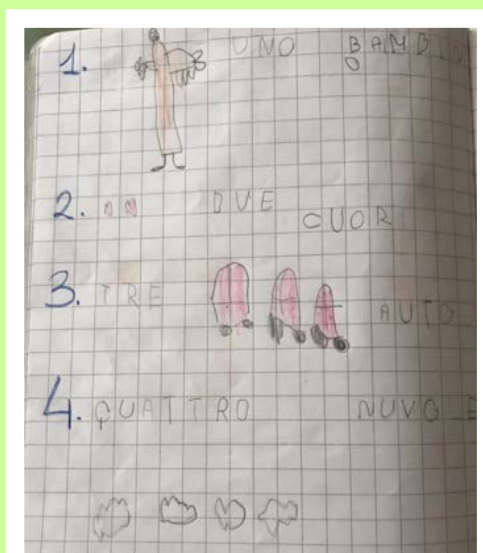 1. UNO BAMBINO
2. DUE CUORI
3. TRE AUTO
4. QUATTRO NUVOLE